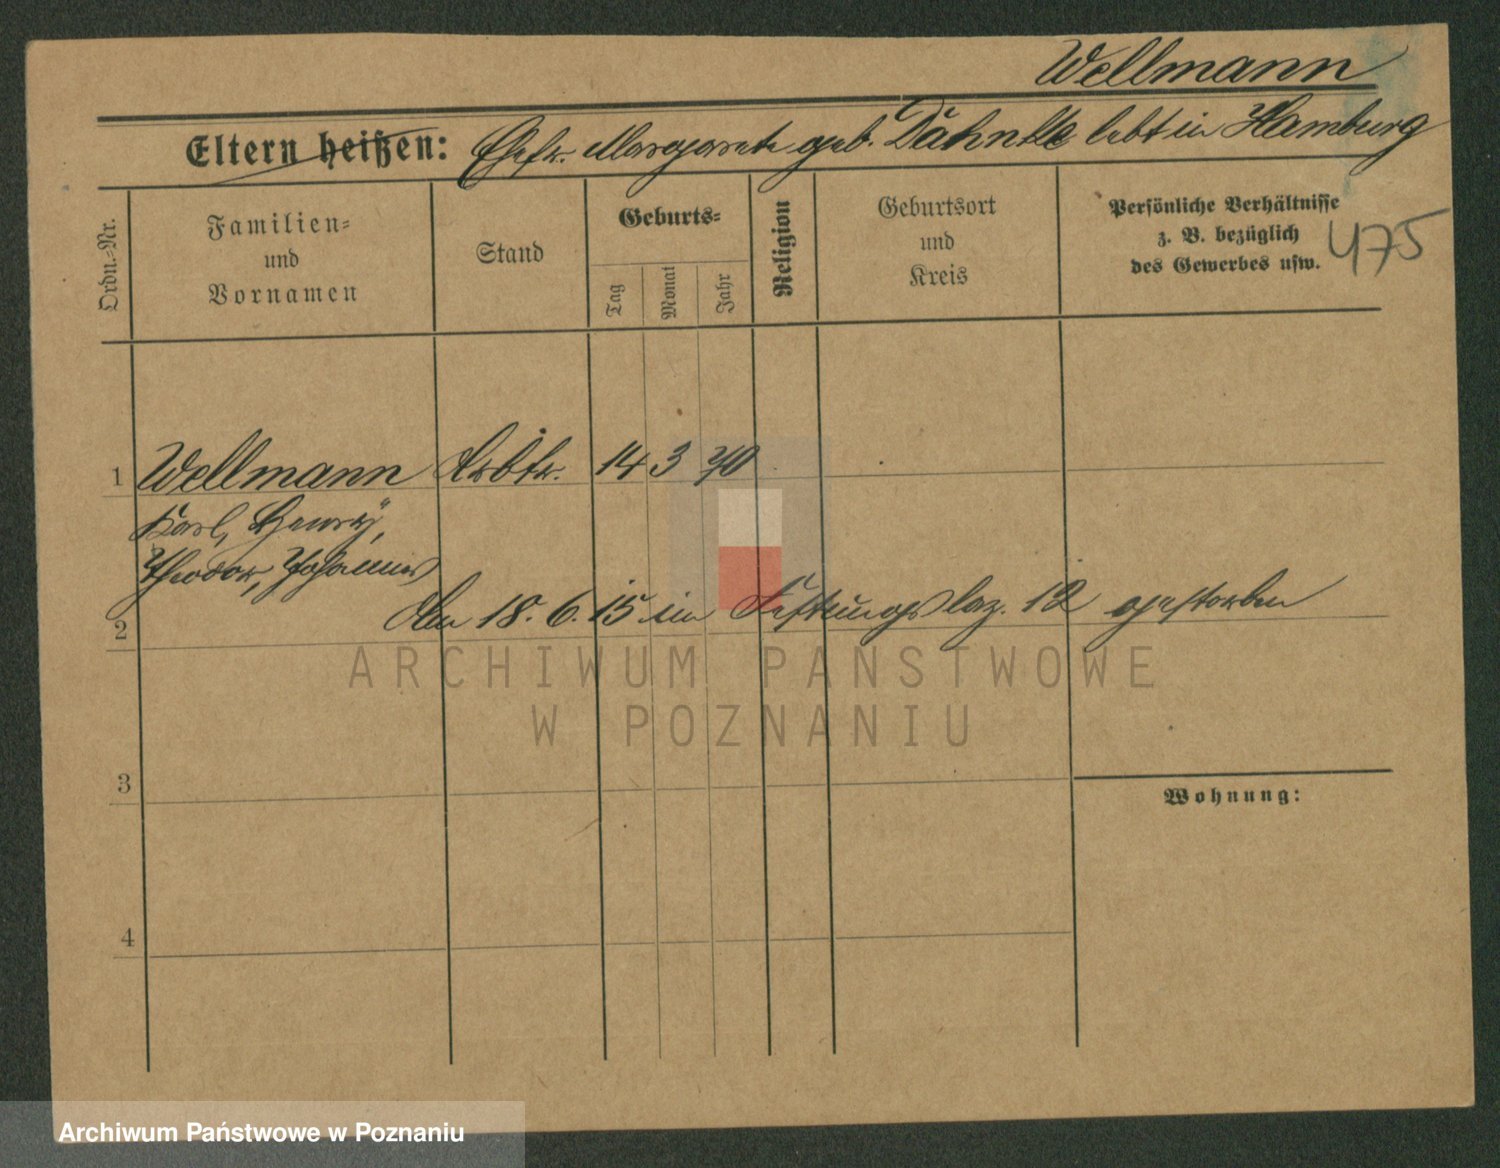 Wellmann
Eltern heißen: Ehefr. Margarete geb. Dähnke lebt in Hamburg
Ordn.-Nr.
Familien-
und
Vornamen
Stand
Geburts-
Tag
Monat
Jahr
Religion
Geburtsort
und
Kreis
Persönliche Verhältnisse
z. B. bezüglich
des Gewerbes usw.
475
1 Wellmann Arbtr. 14 3 70
Karl, Henry,
Theodor, Johannes
Am 18. 6. 15 im Festungslaz. 12 gestorben
2
ARCHIWUM PAŃSTWOWE
W POZNANIU
3
Wohnung:
4
Archiwum Państwowe w Poznaniu